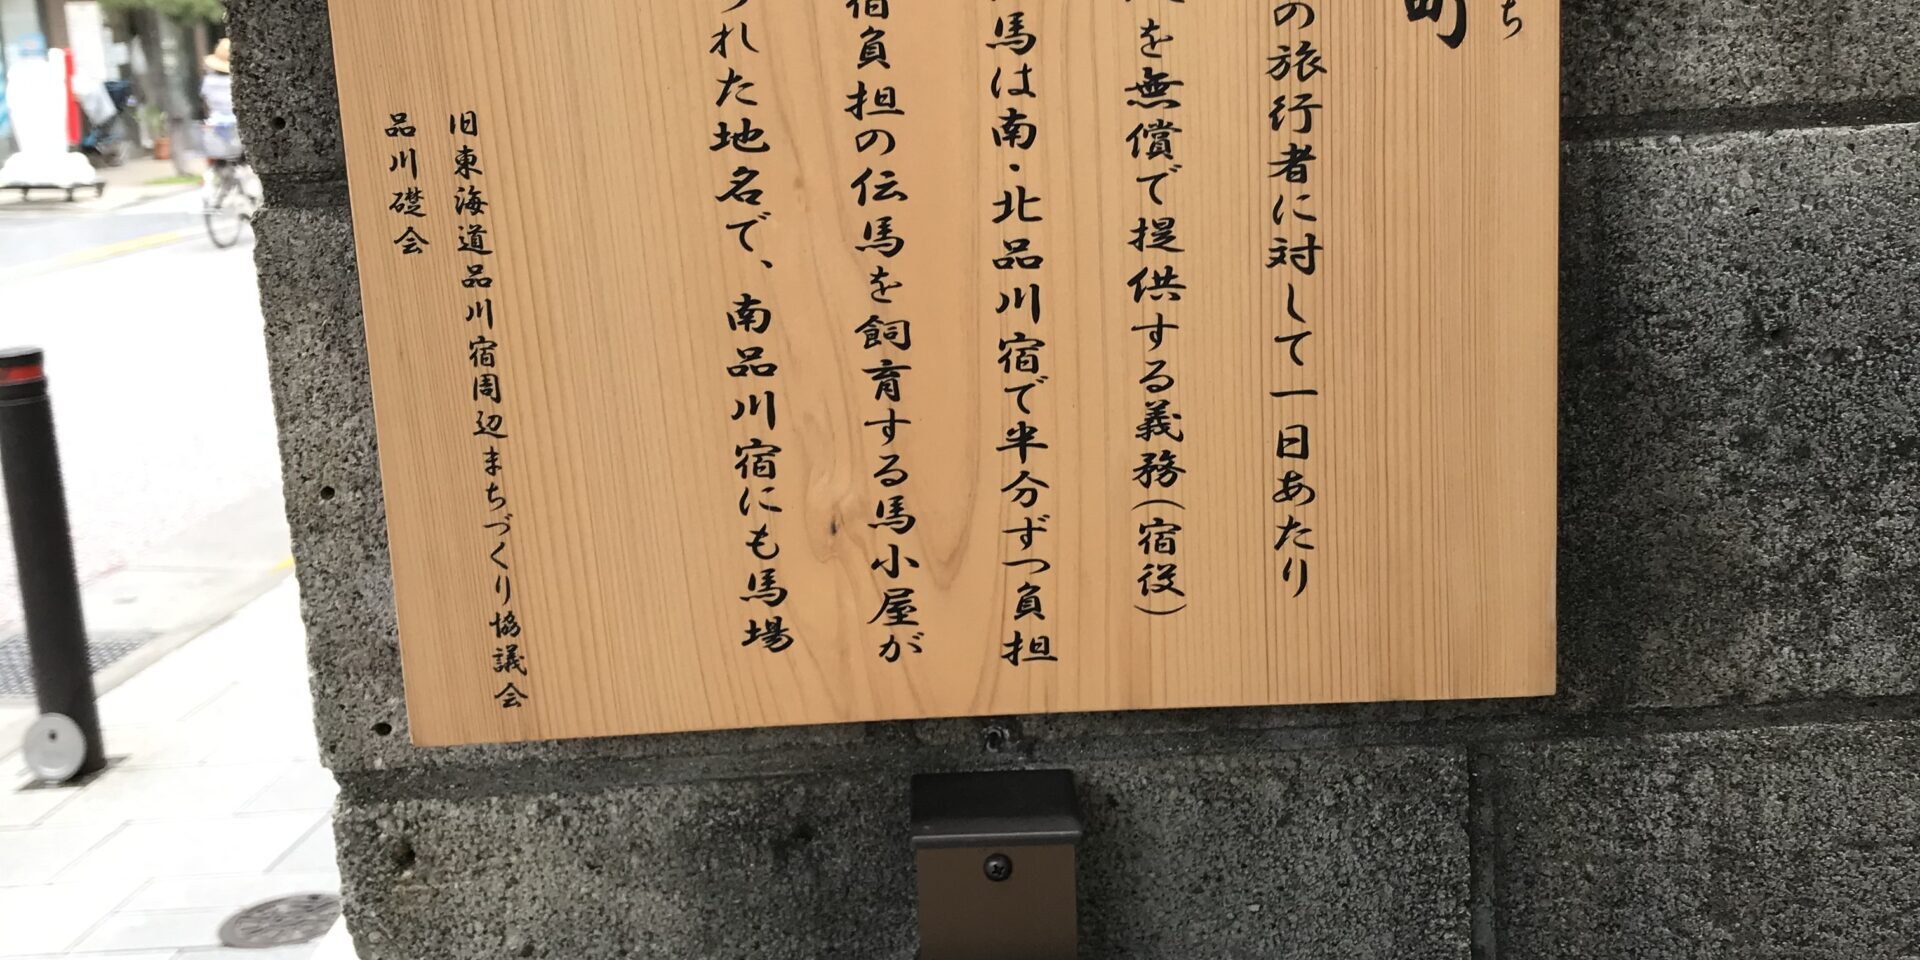 ち
町
の旅行者に対して一日あたり
を無償で提供する義務(宿役)
馬は南・北品川宿で半分ずつ負担
宿負担の伝馬を飼育する馬小屋が
れた地名で、南品川宿にも馬場
旧東海道品川宿周辺まちづくり協議会
品川礎会